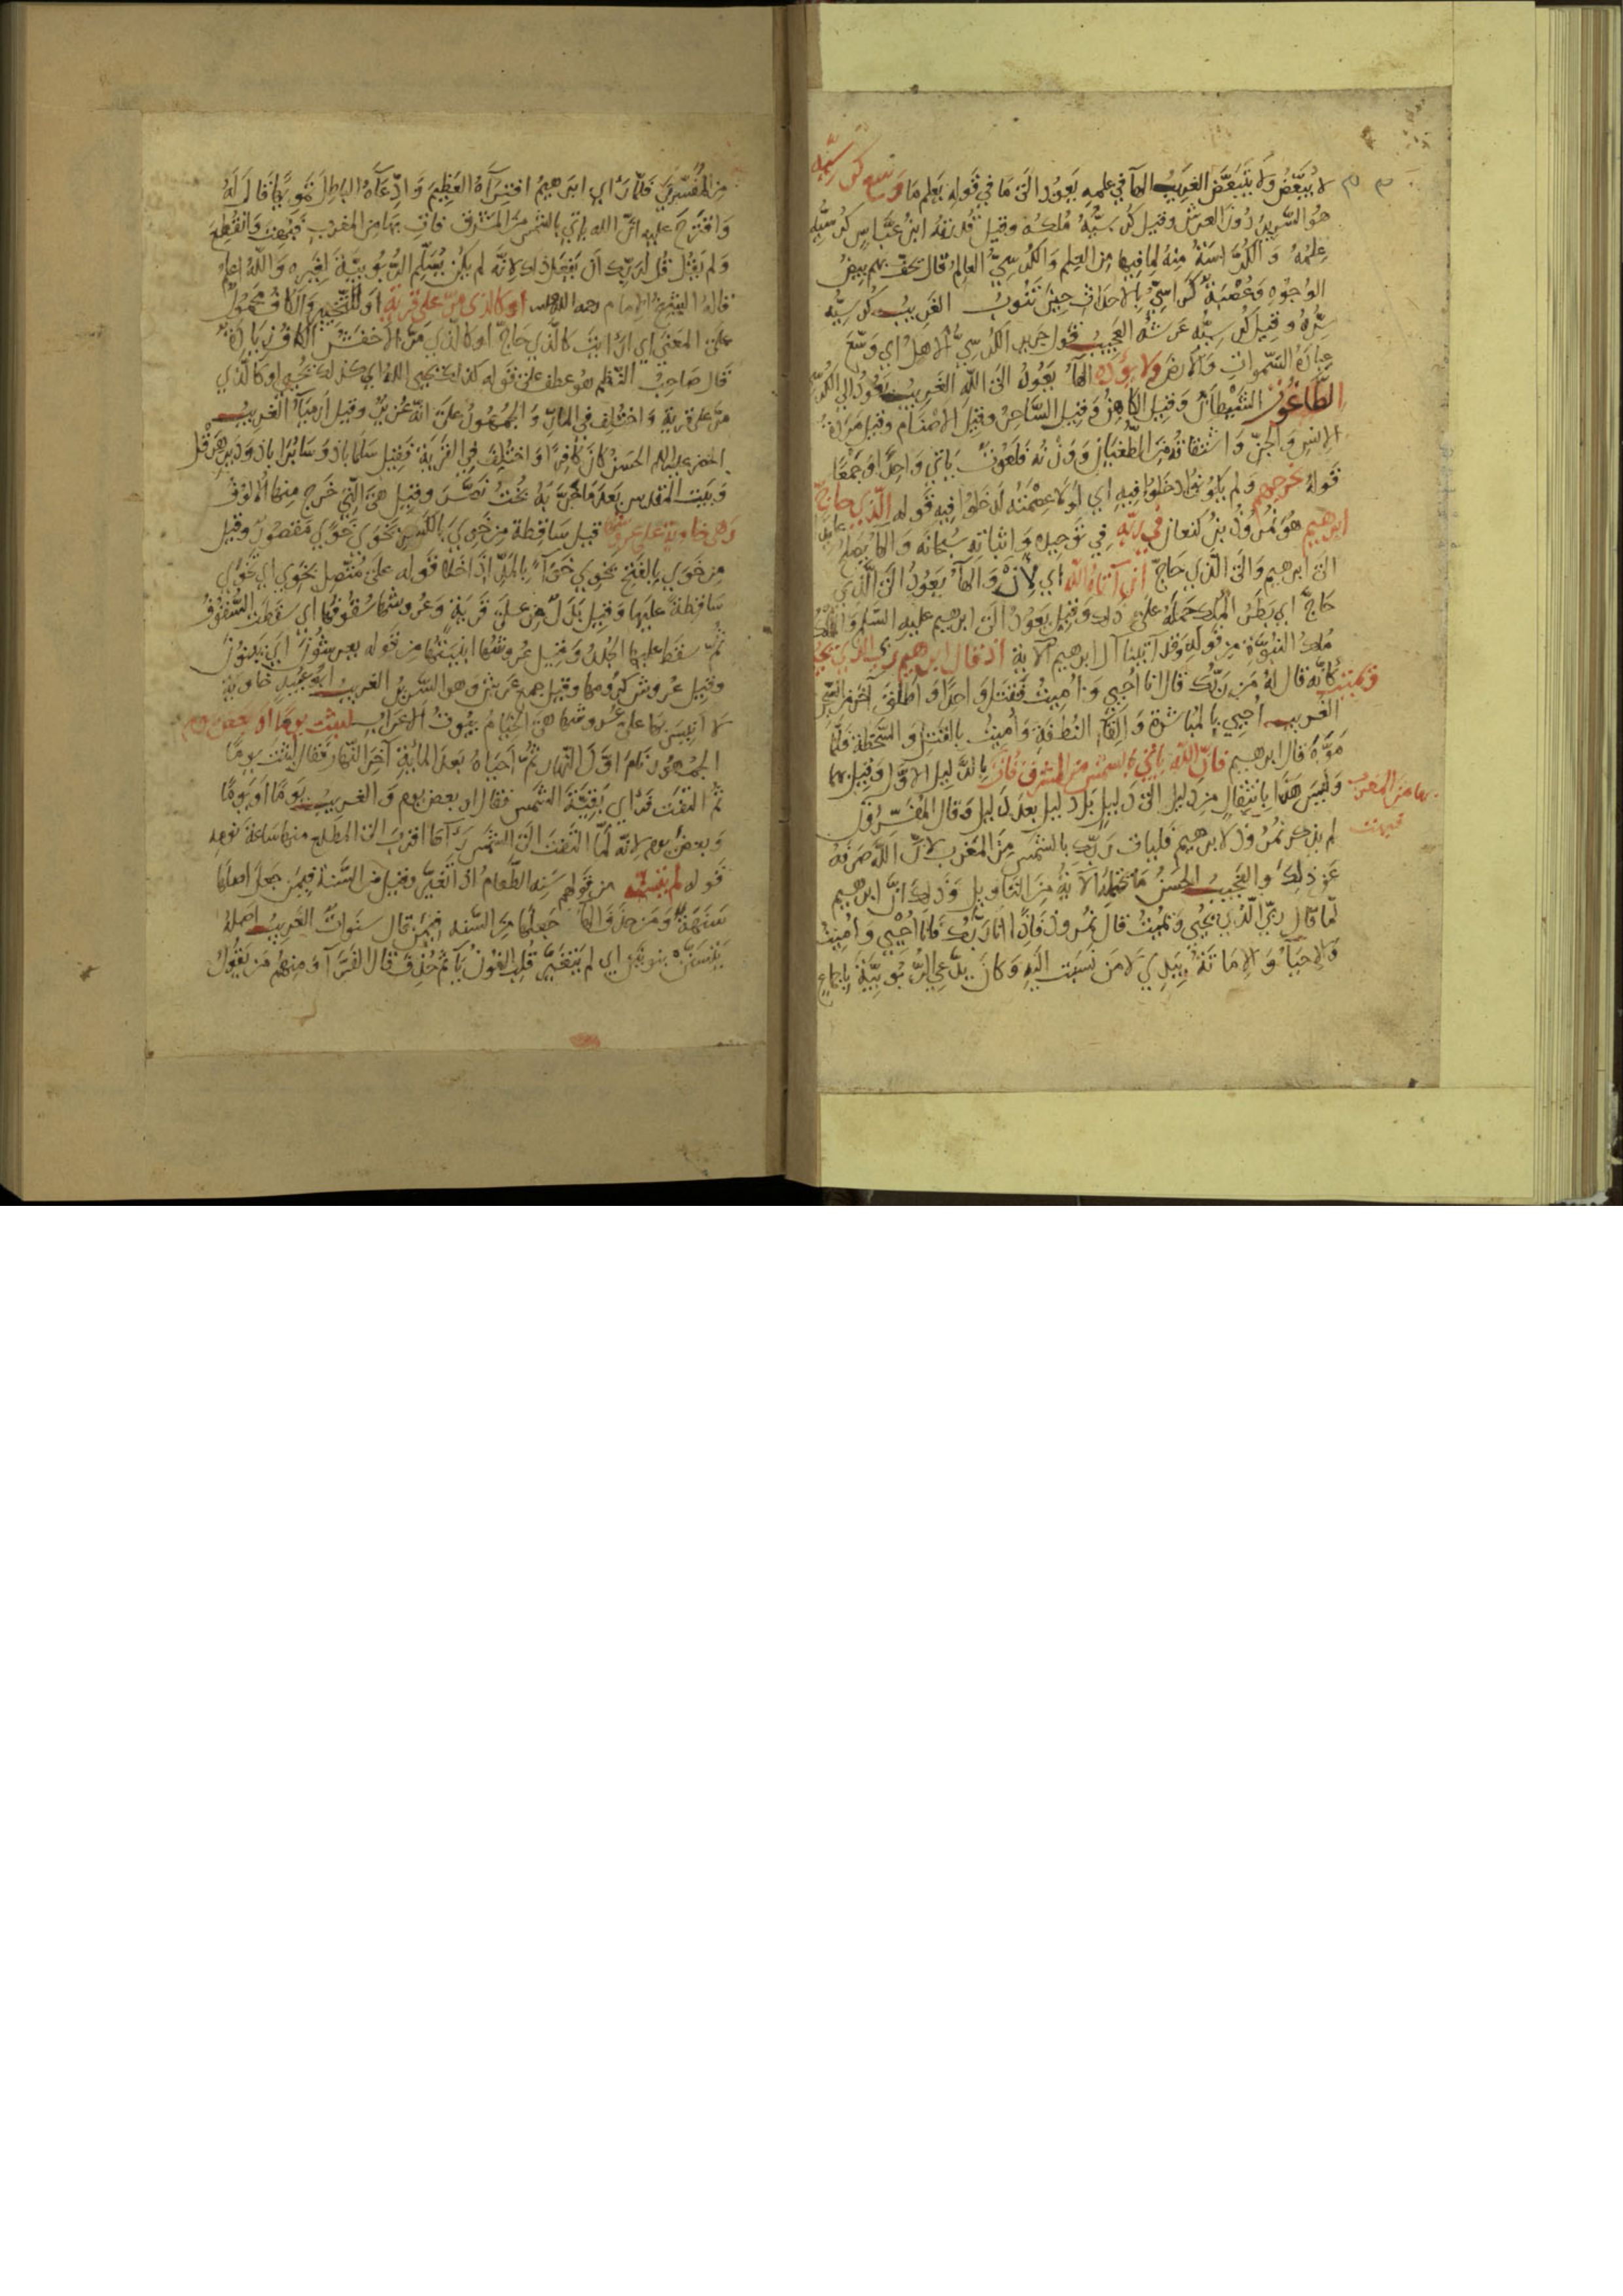 لا يُبَعَّضُ وَلا يَتَبَعَّضُ الغَرِيبُ الهآ في علمه يَعُودُ الَى مَا في قَولِه يَعلم مَا وَسِع كُرسِيُّه
هُوَ السَّرِيرُ دُونَ العرش وقيل كُرسِيُّهُ مُلكُه وقيل قُدرَتهُ ابنُ عَبَّاسٍ كُرسِيُّه
عِلمُهُ وَالكُرَّاسَةُ مِنهُ لِمَا فيها مِنَ العِلم وَالكُرسِيُّ العالِمُ قال يَحُفُّ بهم بِيضُ
الوُجُوهِ وَعُصْبَةٌ كَرَاسِيُّ بِالاحداثِ حِينَ تَنُوبُ الغَرِيبُ كُرسِيُّه
سِرُّهُ وقيل كُرسِيُّه عَرشُه العَجِيبُ قول جرير الكُرسِيُّ الاهل اي وَسِعَ
عِبَادُهُ السَّمواتِ وَالارضَ ولا يَؤُدُه الهآ يَعُودُ الَى اللّه الغَرِيبُ يَعُودُ الي الكُرسِيّ
الطَّاغُوت الشَّيطَانُ وَقيل الكاهِنُ وَقيل السَّاحِرُ وقيل الاصنَام وقيل مَرَدَةُ
الاِنسِ وَالجِنِّ وَاشتقاقُه مِنَ الطُّغيَانِ وَوَزنُه فَلَعُوتٌ يَأتي وَاحِدًا وَجَمعًا
قَولهُ يخرجهم وَلم يَكُونُوا دَخَلُوا فيهِ اي لَولَا عِصمَتُه لَدَخَلُوا فيه قَوله الَّذِي حَاجَّ
ابرهيم هُوَ نُمرُوذُ بنُ كنعانَ في رَبِّه في تَوحِيدِه وَاِثباتِه سُبحَانَه وَالهآ يَصلُح
الَى ابرهيم وَالَى الَّذي حَاجَّ اَن آتَاهُ اللّه اي لِاَنْ وَالهآ يَعُودُ الَى الَّذي
حَاجَّ اي بَطَرُ المُلك حَمَلَهُ عَلَى ذلك وَقيل يَعُودُ الَى ابرهيم عليه السَّلم وَالملكُ
مُلكُ النُّبوَّة مِن قَولِه فقد آتينا آل ابرهيم الآية اذ قال ابرهيم ربي الذي يحيي
ويميت كَانَّه قال لهُ مَن رَبُّك قال انا اُحيِي وَاُمِيتُ فَقَتَلَ وَاحِدًا وَاَطلَقَ آخَرَ مِنَ السِّجنِ
الغَرِيبُ اُحيي بِالمُبَاشَرَةِ وَاِلقَآءِ النُّطفَةِ وَاُمِيتُ بِالقَتلِ وَالسَّخطَةِ فَلَمَّا
مَوَّهَ قال ابرهيم فَاِنَّ اللّه يَأتي بِالشمسِ مِنَ المشرِقِ فَأتِ
بها مِنَ المغرب وَلَيسَ هَذَا بِانتِقَالٍ مِن دَليلٍ الَى دَليلٍ بَل دَليل بَعدَ دَليل وَقال المُفَسِّرُونَ
فبهت لم يذكر نُمرُوذ لابرهيم فليأتِ رَبُّك بالشَّمسِ مِنَ المَغرِب لاَنَّ اللّه صَرَفَهُ
عَن ذلِكَ والعَجِيبُ الحَسَنُ مَا تحتَمِلُه الآيَةُ مِنَ التَّأوِيلِ وَذلِكَ انَّ ابرهيم
لَمَّا قال رَبِّيَ الَّذِي يُحيِي وَيُمِيتُ قال نُمرُوذ فَاِنّي انَا رَبُّك فَانَا اُحيِي وَاُمِيتُ
وَالاِحيَآءُ وَالاِمَاتَةُ بِيَدِي لَا مَن نَسَبتَ اليَهِ وَكانَ يَدَّعِي الرُّبُوبِيَّةَ بِاجماعٍ
مِنَ المُفَسِّرِينَ فَلَمّا رَاَى ابرهيمُ افتِرَآءَهُ العَظِيمَ وَادِّعَآءَهُ البَاطِلَ تَموِيهًا قالَ لَهُ
وَاقتَرَحَ عليهِ انَّ الله يأتي بالشمسِ مِنَ المَشرِقِ فأتِ بهَا مِنَ المَغرب فَبُهِتَ وَانقَطَعَ
وَلم يَقُل قل لرَبِّك اَن يَفعَل ذلك لاِنَّه لم يَكُن يُسَلِّم الرُّبُوبِيَّةَ لِغَيرِه وَاللّهُ اعلم
قالهُ الشَّيخُ الاِمَام رحمه الله اوكالذي مَرَّ علي قرية اَو لِلتَّخيِيرِ وَالكافُ مَحمُولٌ
عَلَى المَعنَى اي اَرَاَيتَ كَالَّذي حَاجَّ اَو كَالَّذِي مَرَّ الاَخفَشُ الكافُ زِيَادَةٌ
قَال صَاحِبُ النَّظم هُو عطف على قَوله كذلك يحيي اللهُ اي كذلك يُحيِي اوكَالَّذي
مَرَّ على قرية وَاختُلِفَ في المَارِّ وَالجُمهُورُ علَى انَّه عُزَيرٌ وقيل اَرمِيَآءُ الغَرِيبُ
الخضر عليهما الحَسَنُ كانَ كَافِرًا وَاختُلِفَ فِي القَريَة فَقيل سَلمَاباذ وَسَابُرَاباذ وَدَيرُ هِرَقْل
وَبَيتُ المَقدِس بَعدَ مَا خَرَّبَهُ بُختُ نَصَّرَ وقيل هيَ الَّتِي خَرَجَ مِنهَا الاُلُوفُ
وَهي خاوية علي عروشها قيل سَاقِطَة مِن خَوِيَ بِالكَسرِ يَخوَي خَوًي مَقصُورٌ وَقيل
مِن خَوَي بِالفَتحِ يَخوِي خَوَآءً بِالمَدِّ اِذَا خَلَا قَوله عَلَى مُتَّصِل بخوي اي خَوَي
سَاقِطَةً عليها وَقيل بَدَلٌ مِن عَلى قَريَةٍ وَعُرُوشُهَا سُقُوفُهَا اي سَقَطَت السُّقُوفُ
ثُمَّ سقط عليها الجُدُرُ وَقيل عُرُوشُها ابنِيَتُهَا مِن قَوله يعرشُون اي يَبنُونَ
وقيل عُرُوش كرُومِها وَقيل جمع عَرش وهو السَّرِيرُ الغَرِيبُ ابُو عُبَيدٍ خَاوِيَة
لا انيسَ بهَا على عُرُوشِهَا هيَ الخِيَامُ بُيُوتُ الاَعرَابِ لبثت يومًا اَو بعض يوم
الجمهُور نَامَ اَوَّلَ النَّهار ثُمَّ اَحيَاهُ بَعدَ المائَةِ آخِرَ النَّهَارِ فقَال لبثت يومًا
ثُمَّ التَفَتَ فَرَاي بَقِيَّةَ الشَّمسِ فقال او بعض يوم وَالغَرِيبُ يَومًا اَو يَومًا
وَبعضَ يوم لاِنّه لَمَّا التَفَتَ الَى الشَّمسِ رَآهَا اقرَبَ الَى المَطلَعِ منها سَاعَة نَومِه
قَوله لم يتسنّه من قَولهم سَنِهَ الطَّعَامُ اذا تَغَيَّرَ وَقيل مِنَ السَّنَةِ فِيمَن جَعَل اصلهَا
سَنَهَةً وَمَن حذَفَ الهآ جَعلها مِنَ السَّنَة فِيمَن قال سَنَوَاتٌ الغَرِيبُ اَصلُهُ
يَتَسَنَّن بنونَينِ اي لم يَتَغَيَّر قُلِبَ النُونُ يَآءً ثُمَّ حُذِفَ قال الفَرَّآءُ وَمِنهُم مَن يَقُولُ